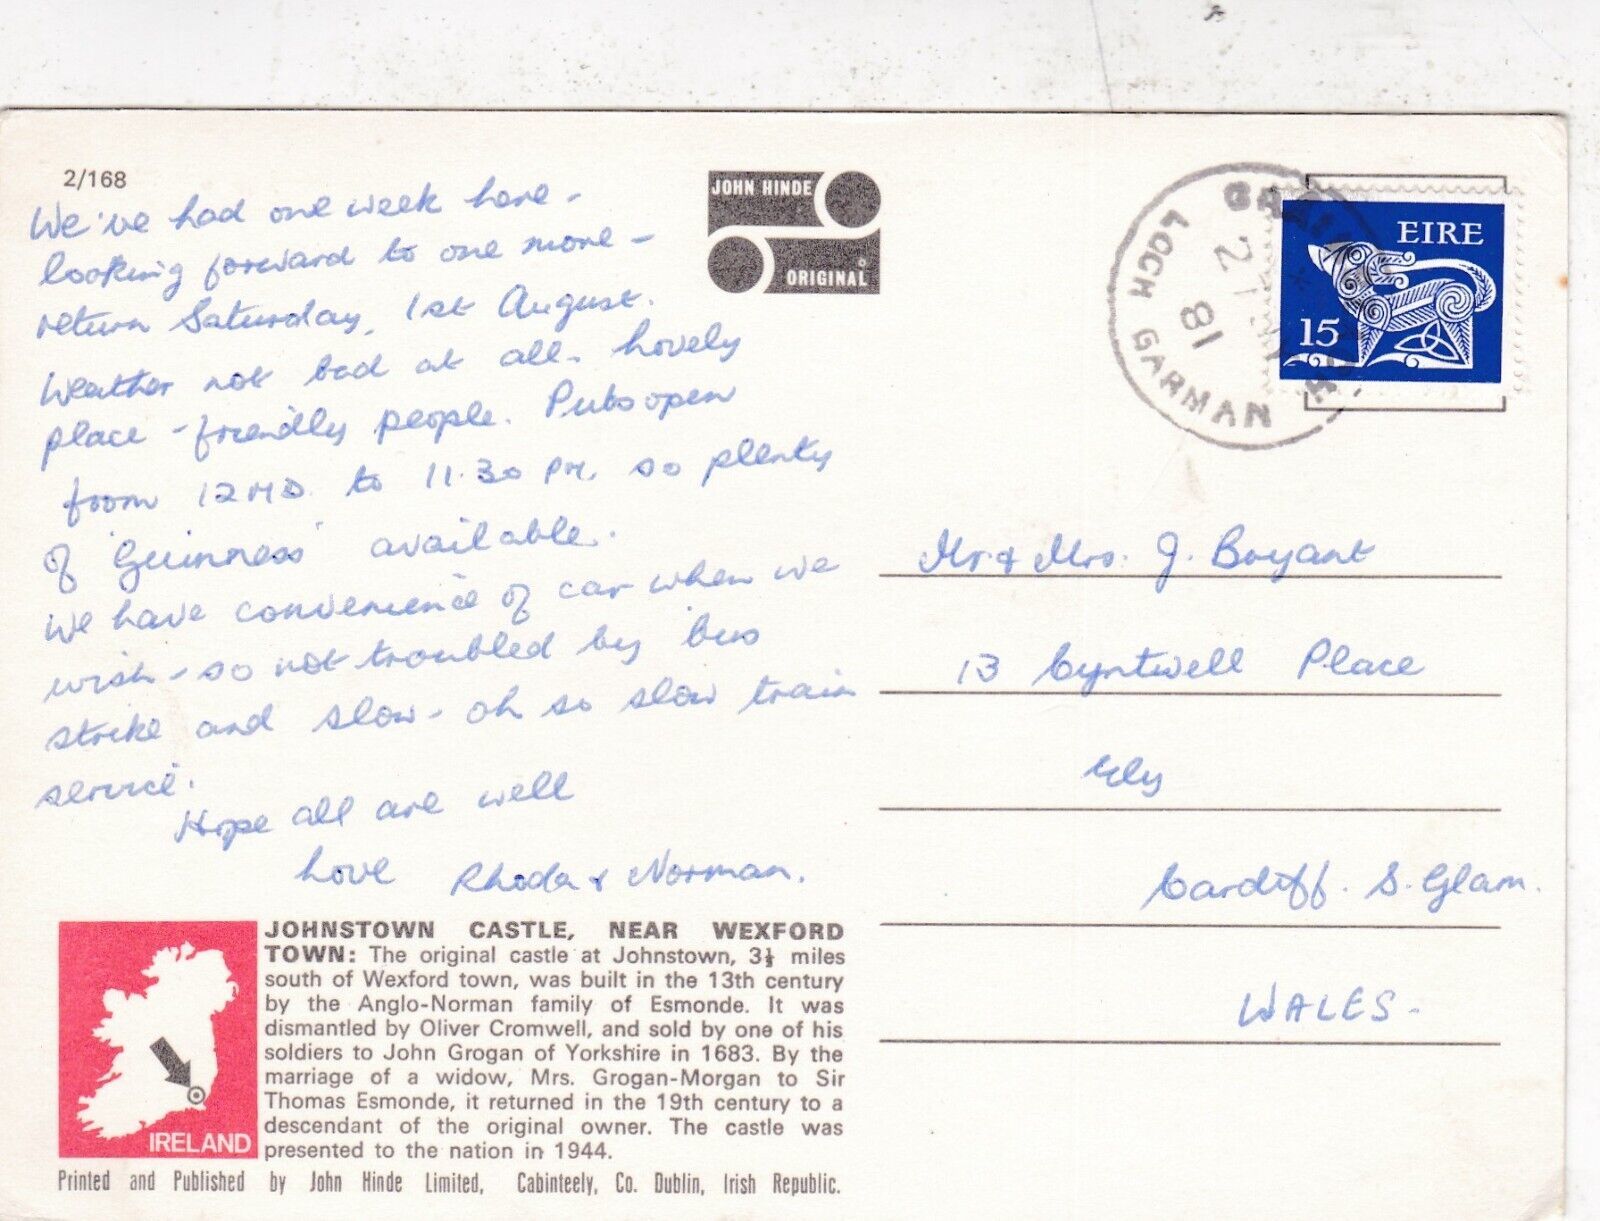 2/168
We've had one week here -
looking forward to one more -
return Saturday, 1st August.
Weather not bad at all. Lovely
place - friendly people. Pubs open
from 12 MD. to 11.30 PM. so plenty
of 'Guinness' available.
We have convenience of car when we
wish - so not troubled by bus
strike and slow - oh so slow train
service.
Hope all are well
Love Rhoda & Norman.
JOHN HINDE
ORIGINAL
LOCH GARMAN
81
EIRE
15
Mr & Mrs. J. Bryant
13 Cyntwell Place
Ely
Cardiff. S. Glam.
WALES.
IRELAND
JOHNSTOWN CASTLE, NEAR WEXFORD
TOWN: The original castle at Johnstown, 3½ miles
south of Wexford town, was built in the 13th century
by the Anglo-Norman family of Esmonde. It was
dismantled by Oliver Cromwell, and sold by one of his
soldiers to John Grogan of Yorkshire in 1683. By the
marriage of a widow, Mrs. Grogan-Morgan to Sir
Thomas Esmonde, it returned in the 19th century to a
descendant of the original owner. The castle was
presented to the nation in 1944.
Printed and Published by John Hinde Limited, Cabinteely, Co. Dublin, Irish Republic.